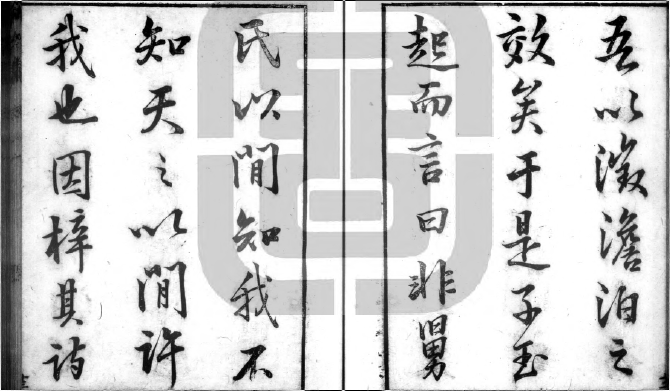 吾以澂澹泊之
效矣于是子玉
起而言曰非舅
氏以閒知我不
知天之以閒許
我也因梓其詩